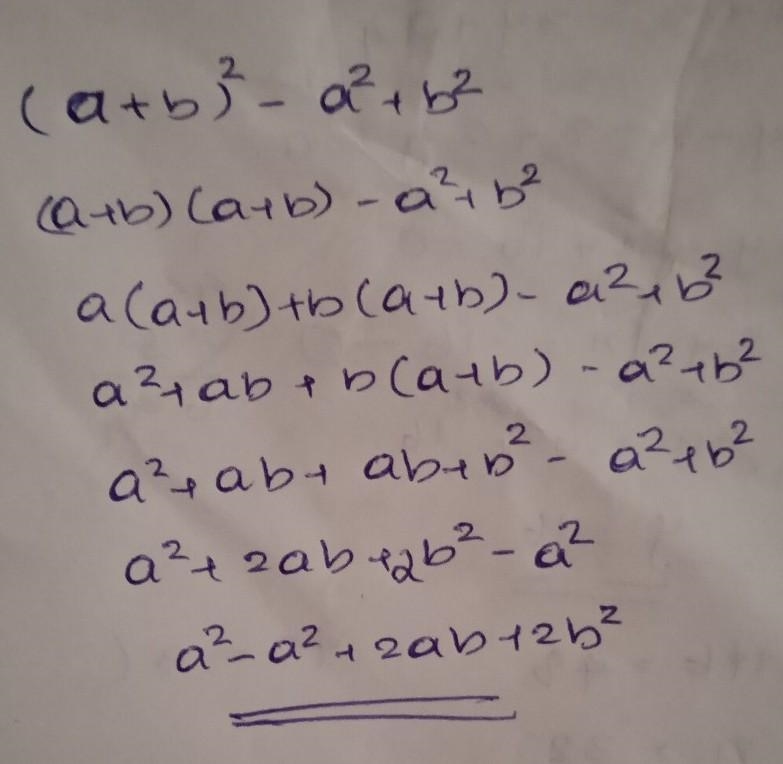 (a+b)² - a²+b²
(a+b)(a+b) - a²+b²
a(a+b)+b(a+b) - a²+b²
a²+ab+b(a+b) - a²+b²
a²+ab+ab+b² - a²+b²
a²+2ab+2b²-a²
a²-a²+2ab+2b²